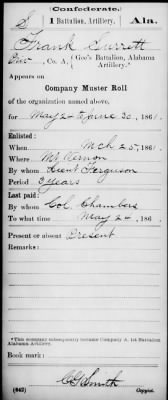 Confederate.
S 1 Battalion, Artillery. Ala.
Frank Surrett
Pvt, Co. A, (Gee's Battalion, Alabama Artillery.*
Appears on
Company Muster Roll
of the organization named above,
for May 2 to June 30, 1861.
Enlisted:
When Mch 25, 1861.
Where Mt. Vernon
By whom Lieut Ferguson
Period 3 years
Last paid:
By whom Col. Chambers
To what time May 2, 186 .
Present or absent Present
Remarks:
*This company subsequently became Company A, 1st Battalion Alabama Artillery.
Book mark:
(642) C G Smith
Copyist.